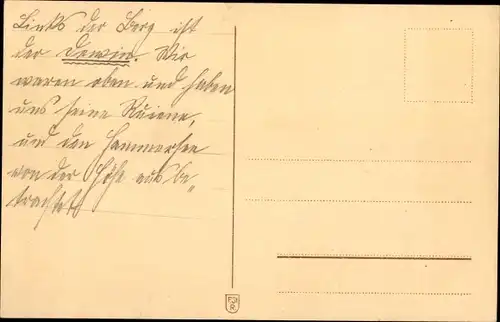 Links der Berg ist
der Dewin. Wir
waren oben und haben
uns seine Ruiene,
und den Hammersee
von der Höhe aus be„
trachtet